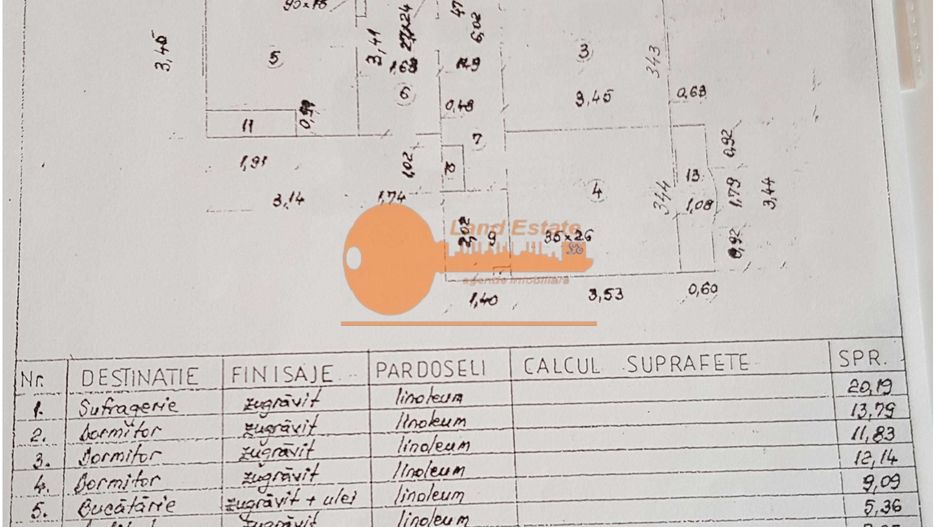 90x18
3,45
5
3,41
1,63
6
6,02
3
3,43
3,45
0,63
0,48
11
0,99
7
1,91
1,02
10
13
0,92
3,14
1,74
4
3,44
1,08
1,79
3,44
Land Estate
2,02
9
35x26
0,92
agentie imobiliara
1,40
3,53
0,60
Nr. DESTINATIE FINISAJE PARDOSELI CALCUL SUPRAFETE SPR.
1. Sufragerie zugrăvit linoleum 20,19
2. Dormitor zugrăvit linoleum 13,79
3. Dormitor zugrăvit linoleum 11,83
4. Dormitor zugrăvit linoleum 12,14
5. Bucătărie zugrăvit + ulei linoleum 9,09
zugrăvit linoleum 5,36